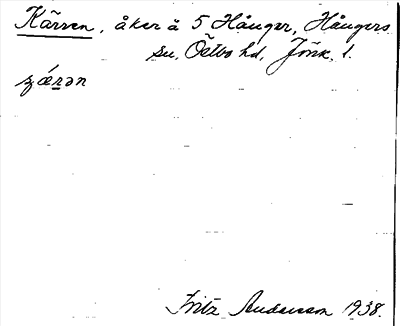 Kärren, åker å 5 Hånger, Hångers
sn, Östbo hd, Jönk. l.
Fritz Andersson 1938.